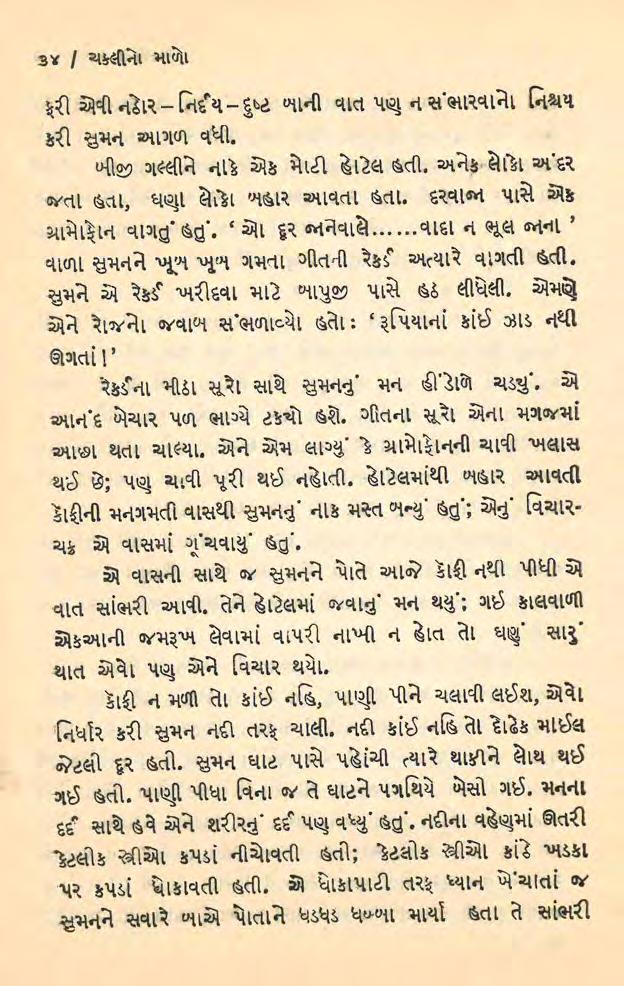 ૩૪ / ચકલીનો માળો
ફરી એવી નઠોર – નિર્દય – દુષ્ટ બાની વાત પણ ન સંભારવાનો નિશ્ચય
કરી સુમન આગળ વધી.
બીજી ગલ્લીને નાકે એક મોટી હોટેલ હતી. અનેક લોકો અંદર
જતા હતા, ઘણા લોકો બહાર આવતા હતા. દરવાજા પાસે એક
ગ્રામોફોન વાગતું હતું. ‘ ઓ દૂર જાનેવાલે......વાદા ન ભૂલ જાના ’
વાળા સુમનને ખૂબ ખૂબ ગમતા ગીતની રેકર્ડ અત્યારે વાગતી હતી.
સુમને એ રેકર્ડ ખરીદવા માટે બાપુજી પાસે હઠ લીધેલી. એમણે
એને રોજનો જવાબ સંભળાવ્યો હતો : ‘ રૂપિયાનાં કાંઈ ઝાડ નથી
ઊગતાં !’
રેકર્ડના મીઠા સૂરો સાથે સુમનનું મન હીંડોળે ચડ્યું. એ
આનંદ બેચાર પળ ભાગ્યે ટક્યો હશે. ગીતના સૂરો એના મગજમાં
આછા થતા ચાલ્યા. એને એમ લાગ્યું કે ગ્રામોફોનની ચાવી ખલાસ
થઈ છે; પણ ચાવી પૂરી થઈ નહોતી. હોટેલમાંથી બહાર આવતી
કૉફીની મનગમતી વાસથી સુમનનું નાક મસ્ત બન્યું હતું; એનું વિચાર-
ચક્ર એ વાસમાં ગૂંચવાયું હતું.
એ વાસની સાથે જ સુમનને પોતે આજે કૉફી નથી પીધી એ
વાત સાંભરી આવી. તેને હોટેલમાં જવાનું મન થયું; ગઈ કાલવાળી
એકઆની જમરૂખ લેવામાં વાપરી નાખી ન હોત તો ઘણું સારું
થાત એવો પણ એને વિચાર થયો.
કૉફી ન મળી તો કાંઈ નહિ, પાણી પીને ચલાવી લઈશ, એવો
નિર્ધાર કરી સુમન નદી તરફ ચાલી. નદી કાંઈ નહિ તો દોઢેક માઈલ
જેટલી દૂર હતી. સુમન ઘાટ પાસે પહોંચી ત્યારે થાકીને લોથ થઈ
ગઈ હતી. પાણી પીધા વિના જ તે ઘાટને પગથિયે બેસી ગઈ. મનના
દર્દ સાથે હવે એને શરીરનું દર્દ પણ વધ્યું હતું. નદીના વહેણમાં ઊતરી
કેટલીક સ્ત્રીઓ કપડાં નીચોવતી હતી; કેટલીક સ્ત્રીઓ કાંઠે ખડકા
પર કપડાં ધોકાવતી હતી. એ ધોકાપાટી તરફ ધ્યાન ખેંચાતાં જ
સુમનને સવારે બાએ પોતાને ધડધડ ધબ્બા માર્યા હતા તે સાંભરી